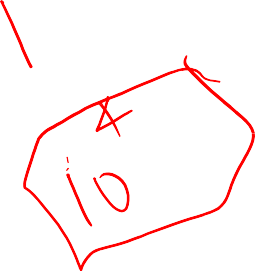 4
10